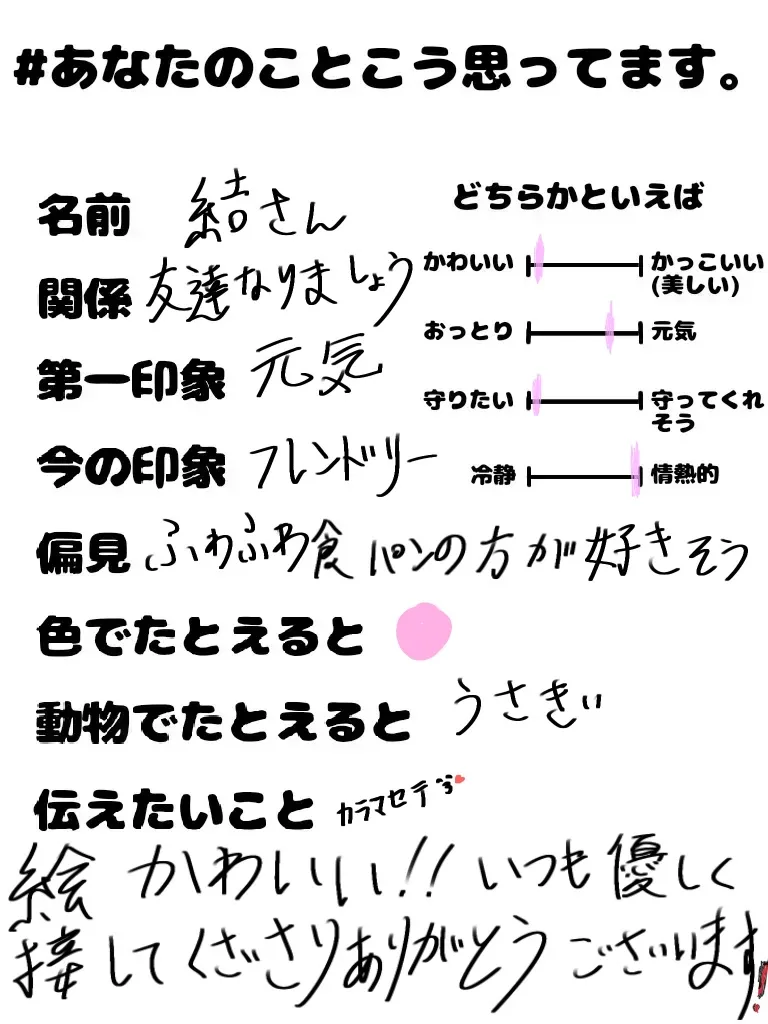 #あなたのことこう思ってます。
名前 結さん
関係 友達なりましょう
第一印象 元気
今の印象 フレンドリー
どちらかといえば
かわいい かっこいい
(美しい)
おっとり 元気
守りたい 守ってくれ
そう
冷静 情熱的
偏見 ふわふわ食パンの方が好きそう
色でたとえると
動物でたとえると うさぎ
伝えたいこと カラマセテ
絵かわいい!!いつも優しく
接してくださりありがとうございます!